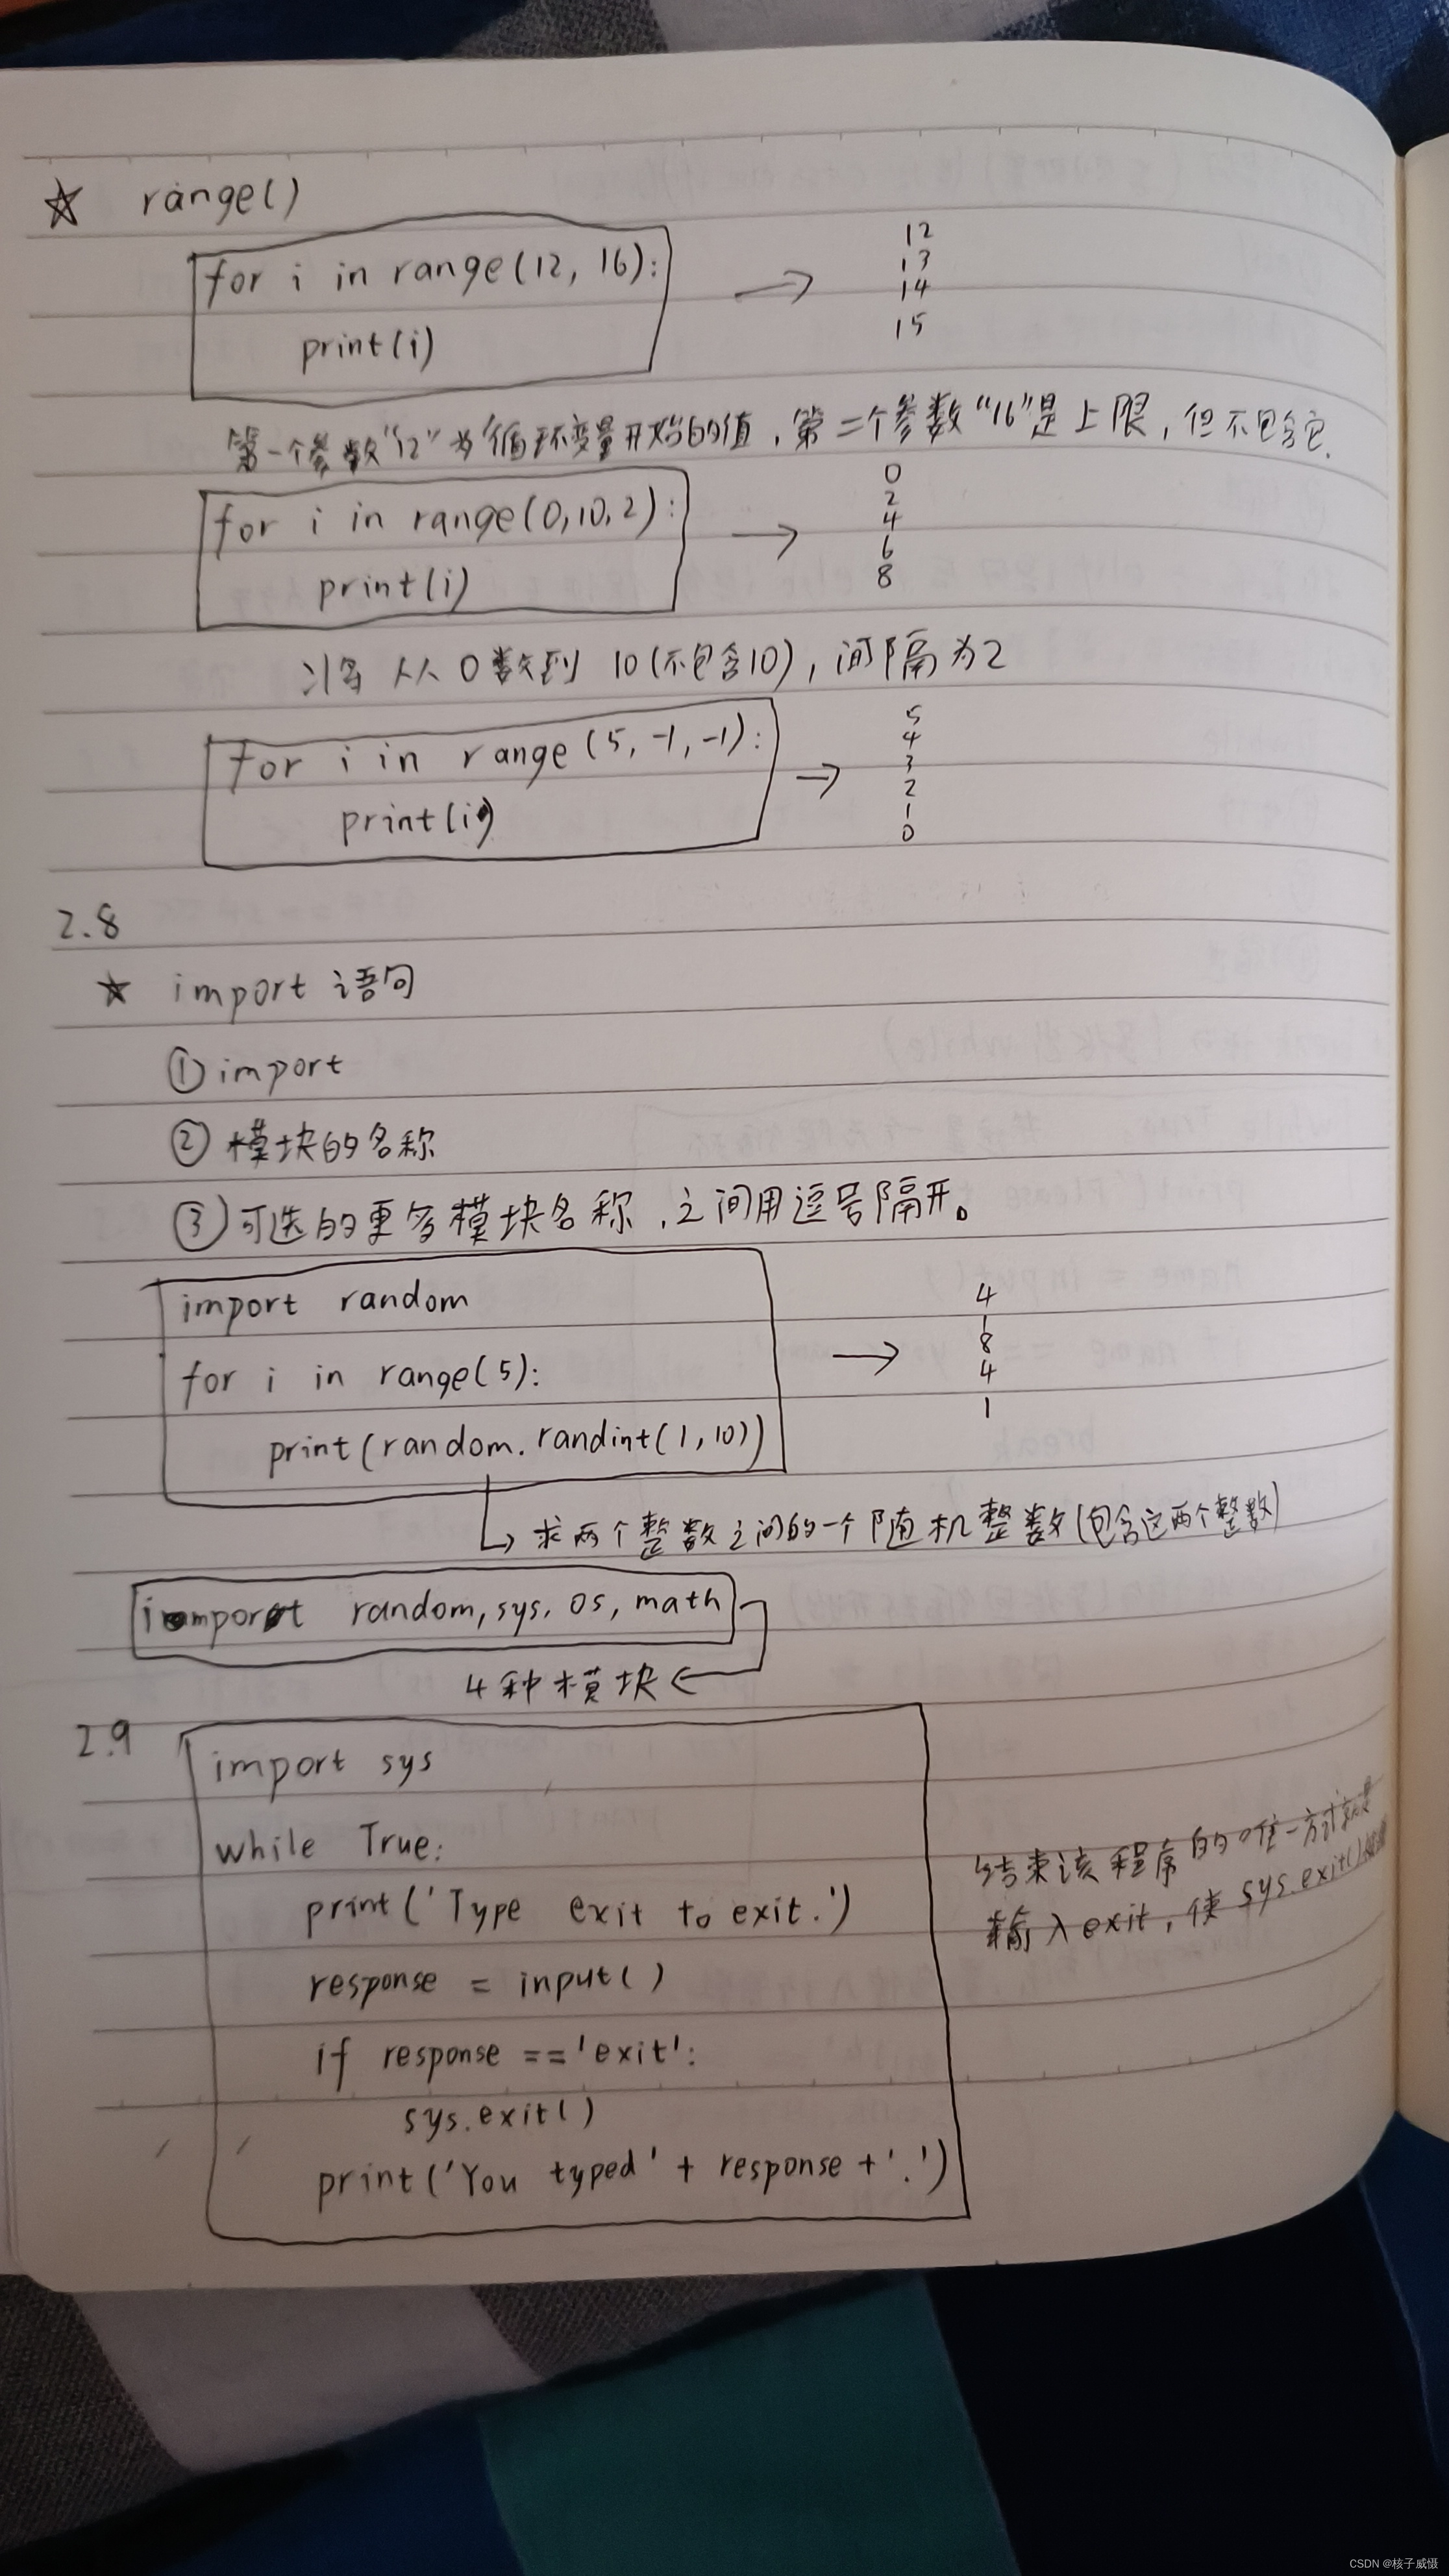 ☆ range()
for i in range(12, 16):
print(i)
→
12
13
14
15
第一个参数“12”为循环变量开始的值,第二个参数“16”是上限,但不包含它.
for i in range(0,10,2):
print(i)
→
0
2
4
6
8
从0数到10(不包含10),间隔为2
for i in range(5,-1,-1):
print(i)
→
5
4
3
2
1
0
2.8
☆ import 语句
①import
②模块的名称
③可选的更多模块名称,之间用逗号隔开。
import random
for i in range(5):
print(random.randint(1,10))
→
4
1
8
4
1
求两个整数之间的一个随机整数(包含这两个整数)
import random, sys, os, math
4种模块
2.9
import sys
while True:
print('Type exit to exit.')
response = input()
if response =='exit':
sys.exit()
print('You typed' + response +'.')
结束该程序的唯一方法就是
输入exit,使sys.exit()
CSDN @核子威慑